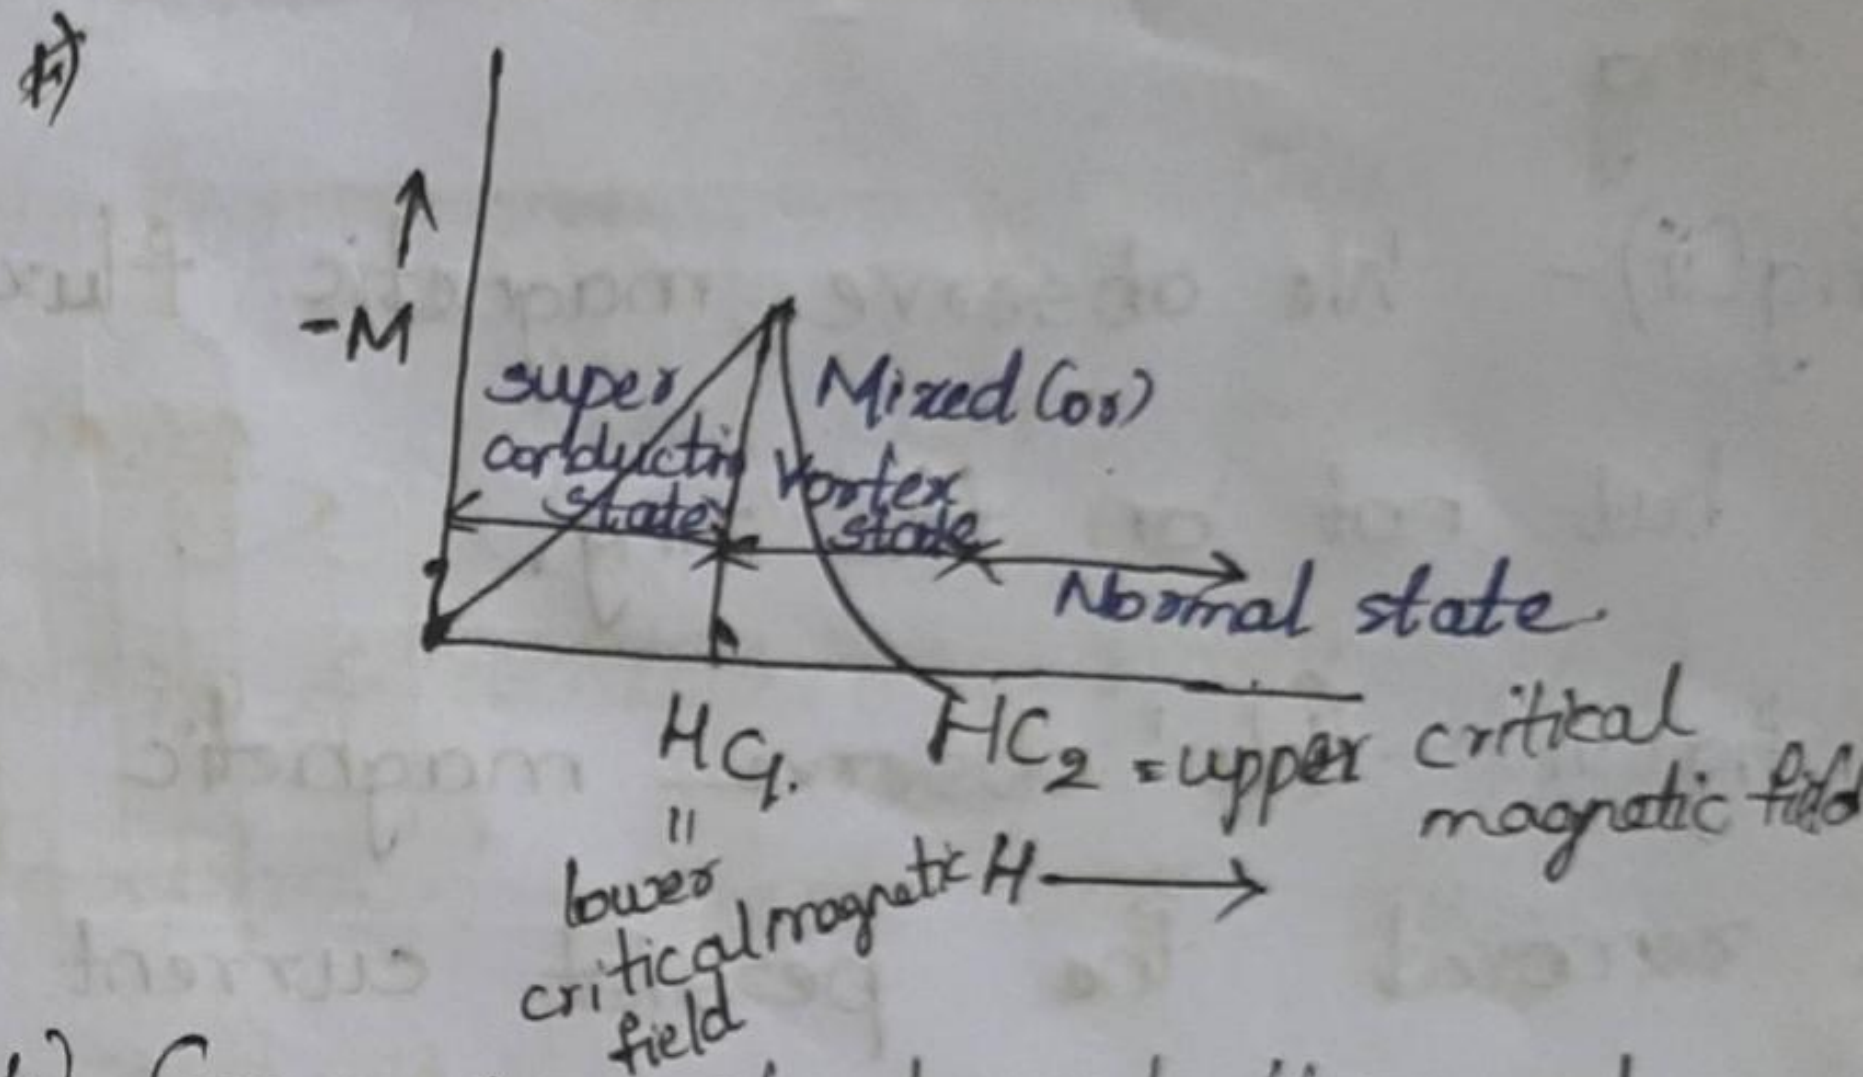 -M
super
conducting
state
Mixed (or)
Vortex
state
Normal state.
HC1.
HC2 = upper critical
magnetic field
"
lower
critical magnetic
field
H